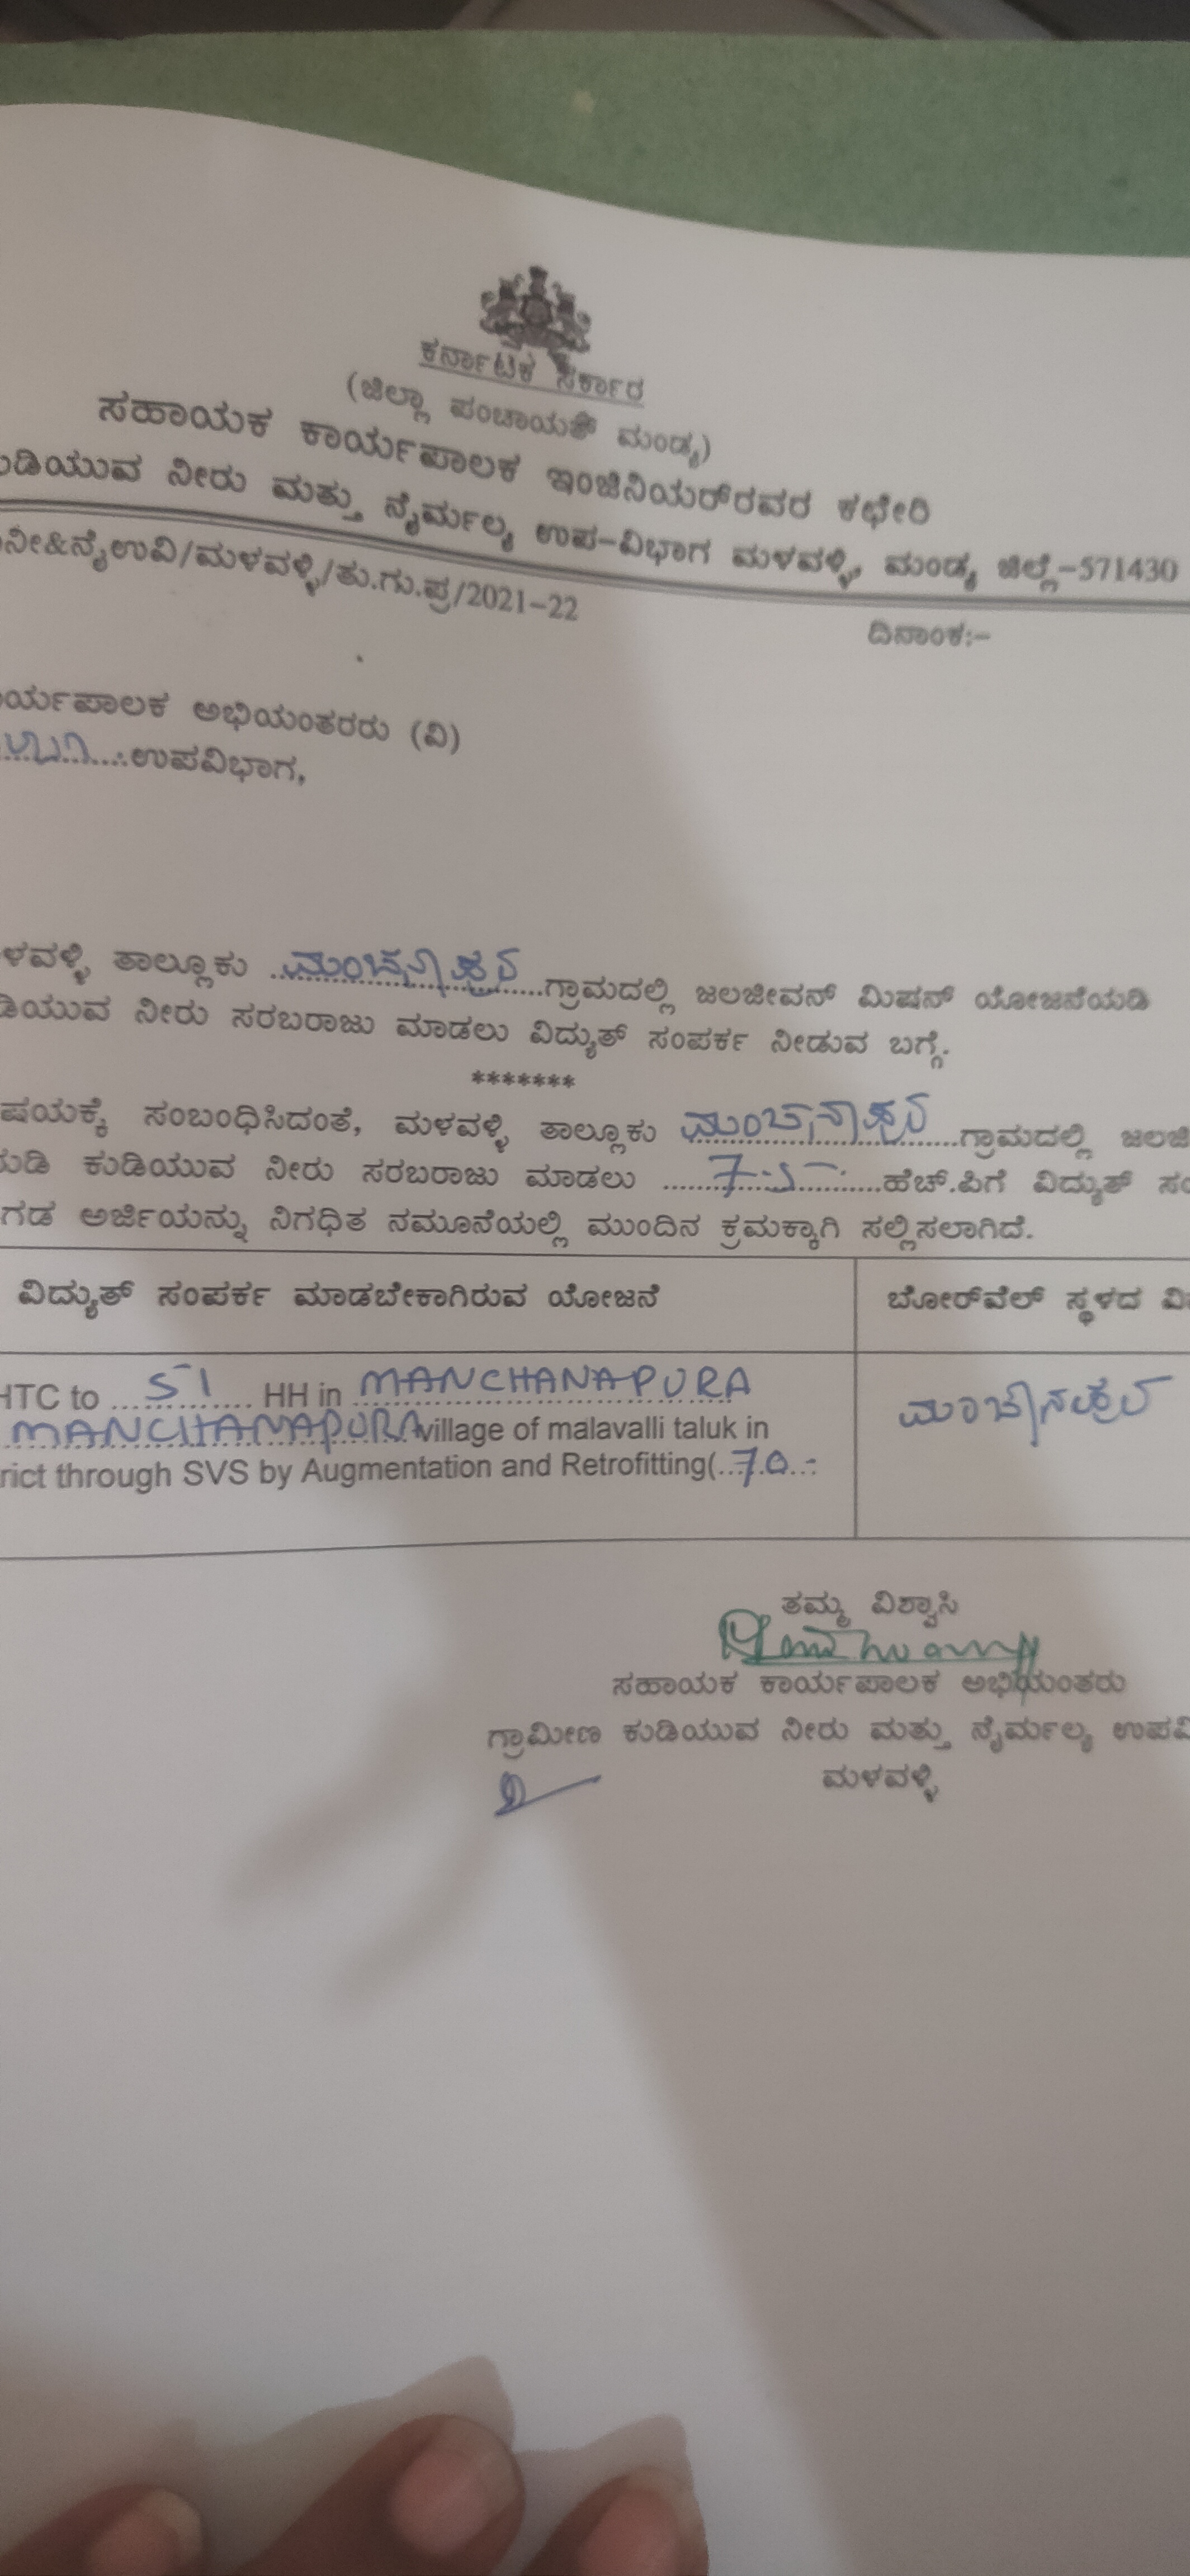 ಕರ್ನಾಟಕ ಸರ್ಕಾರ
(ಜಿಲ್ಲಾ ಪಂಚಾಯತ್ ಮಂಡ್ಯ)
ಸಹಾಯಕ ಕಾರ್ಯಪಾಲಕ ಇಂಜಿನಿಯರ್‌ರವರ ಕಛೇರಿ
ಡಿಯುವ ನೀರು ಮತ್ತು ನೈರ್ಮಲ್ಯ ಉಪ-ವಿಭಾಗ ಮಳವಳ್ಳಿ, ಮಂಡ್ಯ ಜಿಲ್ಲೆ-571430
ನೀ&ನೈಉವಿ/ಮಳವಳ್ಳಿ/ತು.ಗು.ಪ್ರ/2021-22
ದಿನಾಂಕ:-
ರ್ಯಪಾಲಕ ಅಭಿಯಂತರರು (ವಿ)
ಉಪವಿಭಾಗ,
ಳವಳ್ಳಿ ತಾಲ್ಲೂಕು ..ಮಂಚನಾಪುರ....ಗ್ರಾಮದಲ್ಲಿ ಜಲಜೀವನ್ ಮಿಷನ್ ಯೋಜನೆಯಡಿ
ಡಿಯುವ ನೀರು ಸರಬರಾಜು ಮಾಡಲು ವಿದ್ಯುತ್ ಸಂಪರ್ಕ ನೀಡುವ ಬಗ್ಗೆ.
*******
ಷಯಕ್ಕೆ ಸಂಬಂಧಿಸಿದಂತೆ, ಮಳವಳ್ಳಿ ತಾಲ್ಲೂಕು ಮಂಚನಾಪುರ....ಗ್ರಾಮದಲ್ಲಿ ಜಲಜೀ
ುಡಿ ಕುಡಿಯುವ ನೀರು ಸರಬರಾಜು ಮಾಡಲು ......7.5.......ಹೆಚ್.ಪಿಗೆ ವಿದ್ಯುತ್ ಸಂ
ಗಡ ಅರ್ಜಿಯನ್ನು ನಿಗಧಿತ ನಮೂನೆಯಲ್ಲಿ ಮುಂದಿನ ಕ್ರಮಕ್ಕಾಗಿ ಸಲ್ಲಿಸಲಾಗಿದೆ.
ವಿದ್ಯುತ್ ಸಂಪರ್ಕ ಮಾಡಬೇಕಾಗಿರುವ ಯೋಜನೆ
ಬೋರ್‌ವೆಲ್ ಸ್ಥಳದ ವಿ
HTC to ....51..... HH in MANCHANAPURA
MANCHANAPURA village of malavalli taluk in
rict through SVS by Augmentation and Retrofitting(...70..
ಮಂಚನಪುರ
ತಮ್ಮ ವಿಶ್ವಾಸಿ
ಸಹಾಯಕ ಕಾರ್ಯಪಾಲಕ ಅಭಿಯಂತರು
ಗ್ರಾಮೀಣ ಕುಡಿಯುವ ನೀರು ಮತ್ತು ನೈರ್ಮಲ್ಯ ಉಪವಿ
ಮಳವಳ್ಳಿ